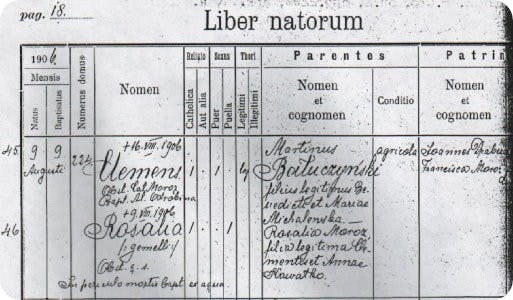 pag. 18.
Liber natorum
1906.
Mensis
Natus
Baptisatus
Numerus domus
Nomen
Religio
Catholica
Aut alia
Sexus
Puer
Puella
Thori
Legitimi
Illegitimi
Parentes
Nomen
et
cognomen
Conditio
Patrin
Nomen
et
cognomen
45
9 9
Augusti
224
+16. VIII. 1906
Clemens
Obst. Moroz
Bapt. Al.
1 . 1
Martinus
Bałuczyński
filius legitimus Be
nedicti et Mariae
Michalewska
agricola
Joannes
Francisca Moro
46
+9. VIII. 1906
Rosalia
/:gemelli:/
Obst. q. s.
In periculo mortis bapt. ex aqua
1 . 1
Rosalia Moroz
filia legitima Cle
mentis et Annae
Kawałko.